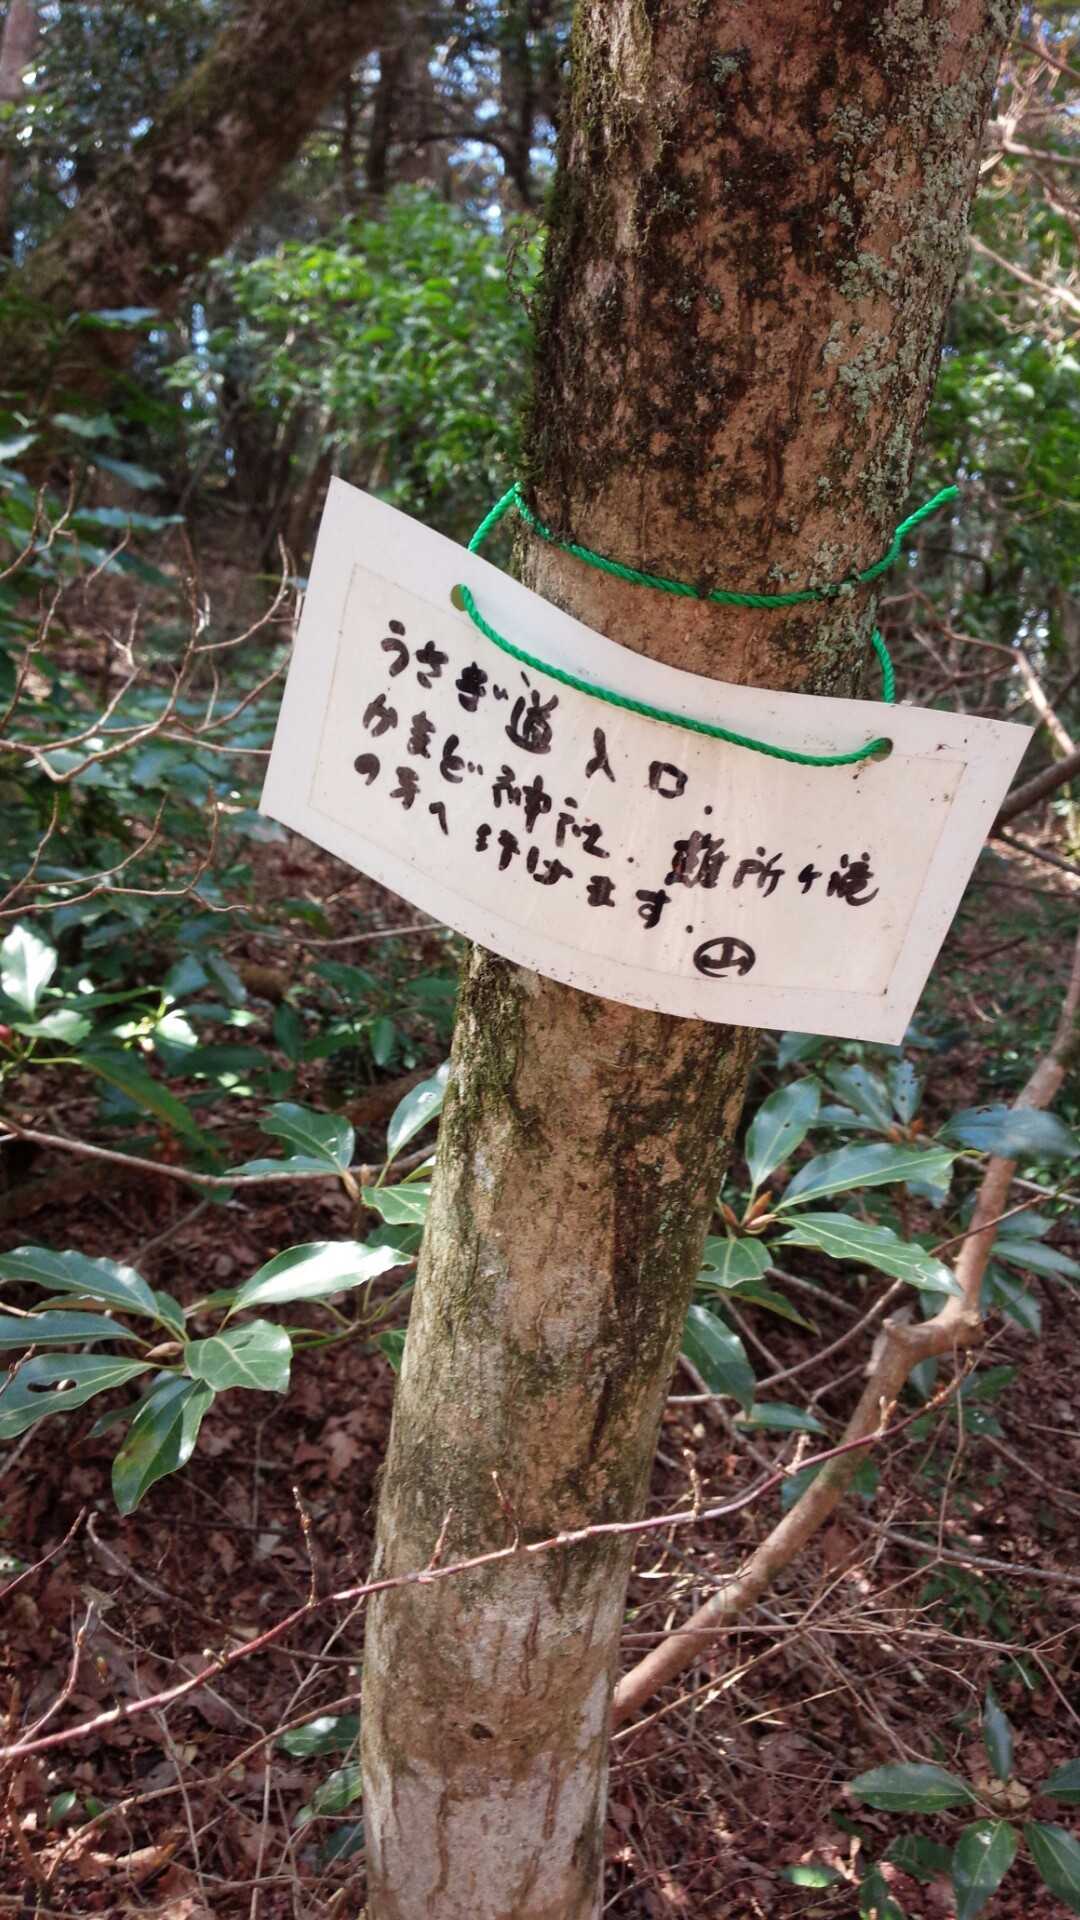 うさぎ道入口.
かまど神社.難所ヶ滝
の方へ行けます.
山